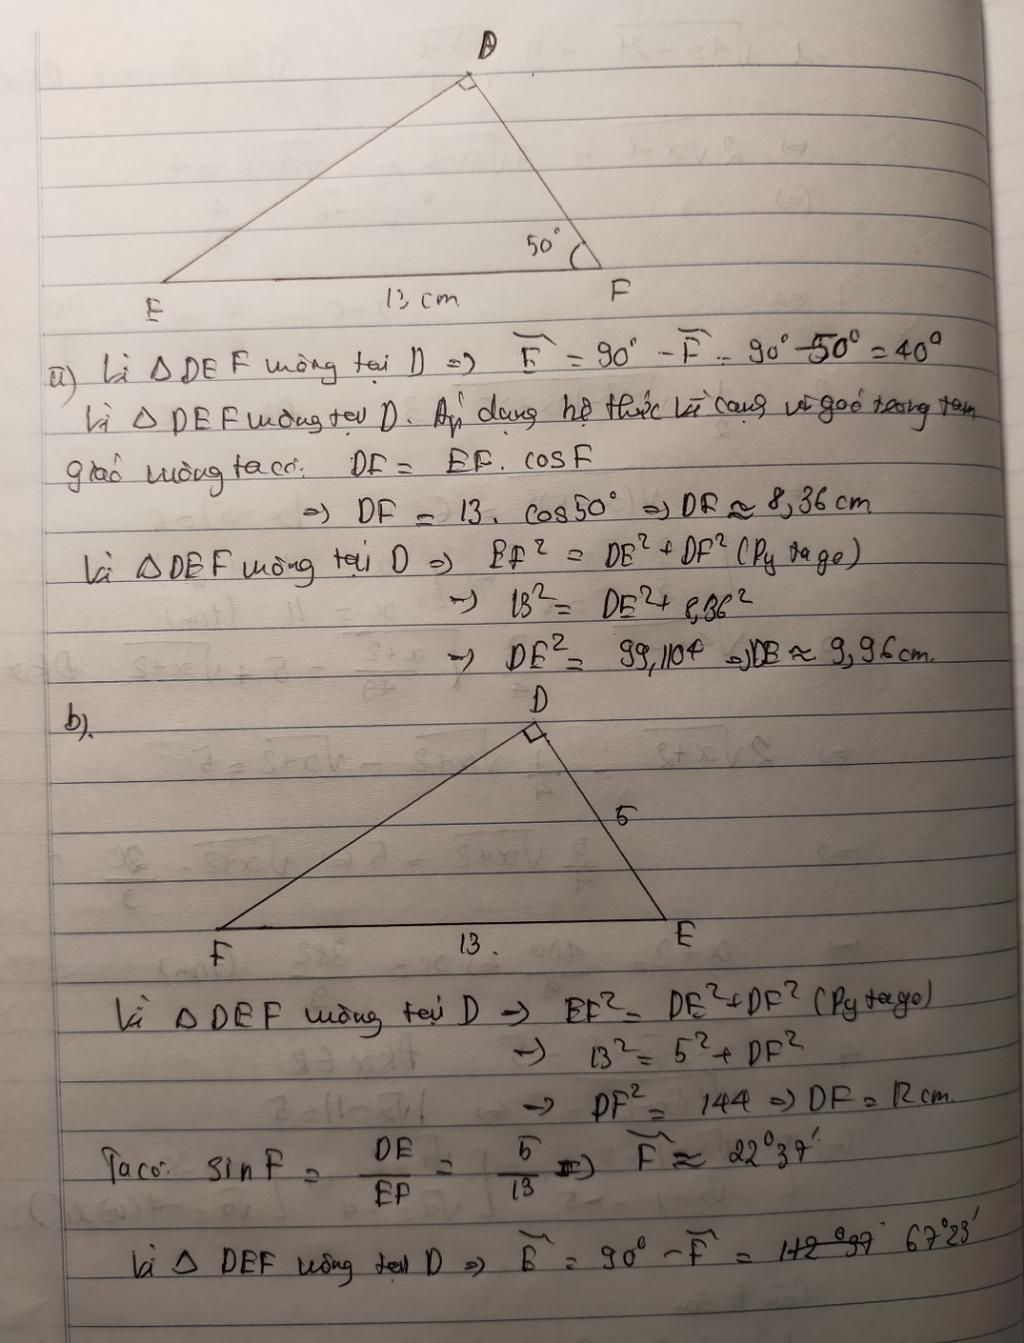 D
50°
E
13 cm
F
a) Vì △DEF vuông tại D => Ê = 90° - F̂ = 90° - 50° = 40°
Vì △DEF vuông tại D. Áp dụng hệ thức về cạnh và góc trong tam
giác vuông ta có: DF = EF. cosF
=> DF = 13. cos50° => DF ≈ 8,36 cm
Vì △DEF vuông tại D => EF² = DE² + DF² (Pytago)
=> 13² = DE² + 8,36²
=> DE² = 99,1104 => DE ≈ 9,96cm.
b).
D
5
F
13.
E
Vì △DEF vuông tại D => EF² = DE² + DF² (Pytago)
=> 13² = 5² + DF²
=> DF² = 144 => DF = 12 cm.
Ta có: sin F = DE/EF = 5/13 => F̂ ≈ 22°37'
Vì △DEF vuông tại D => Ê = 90° - F̂ = 67°23'